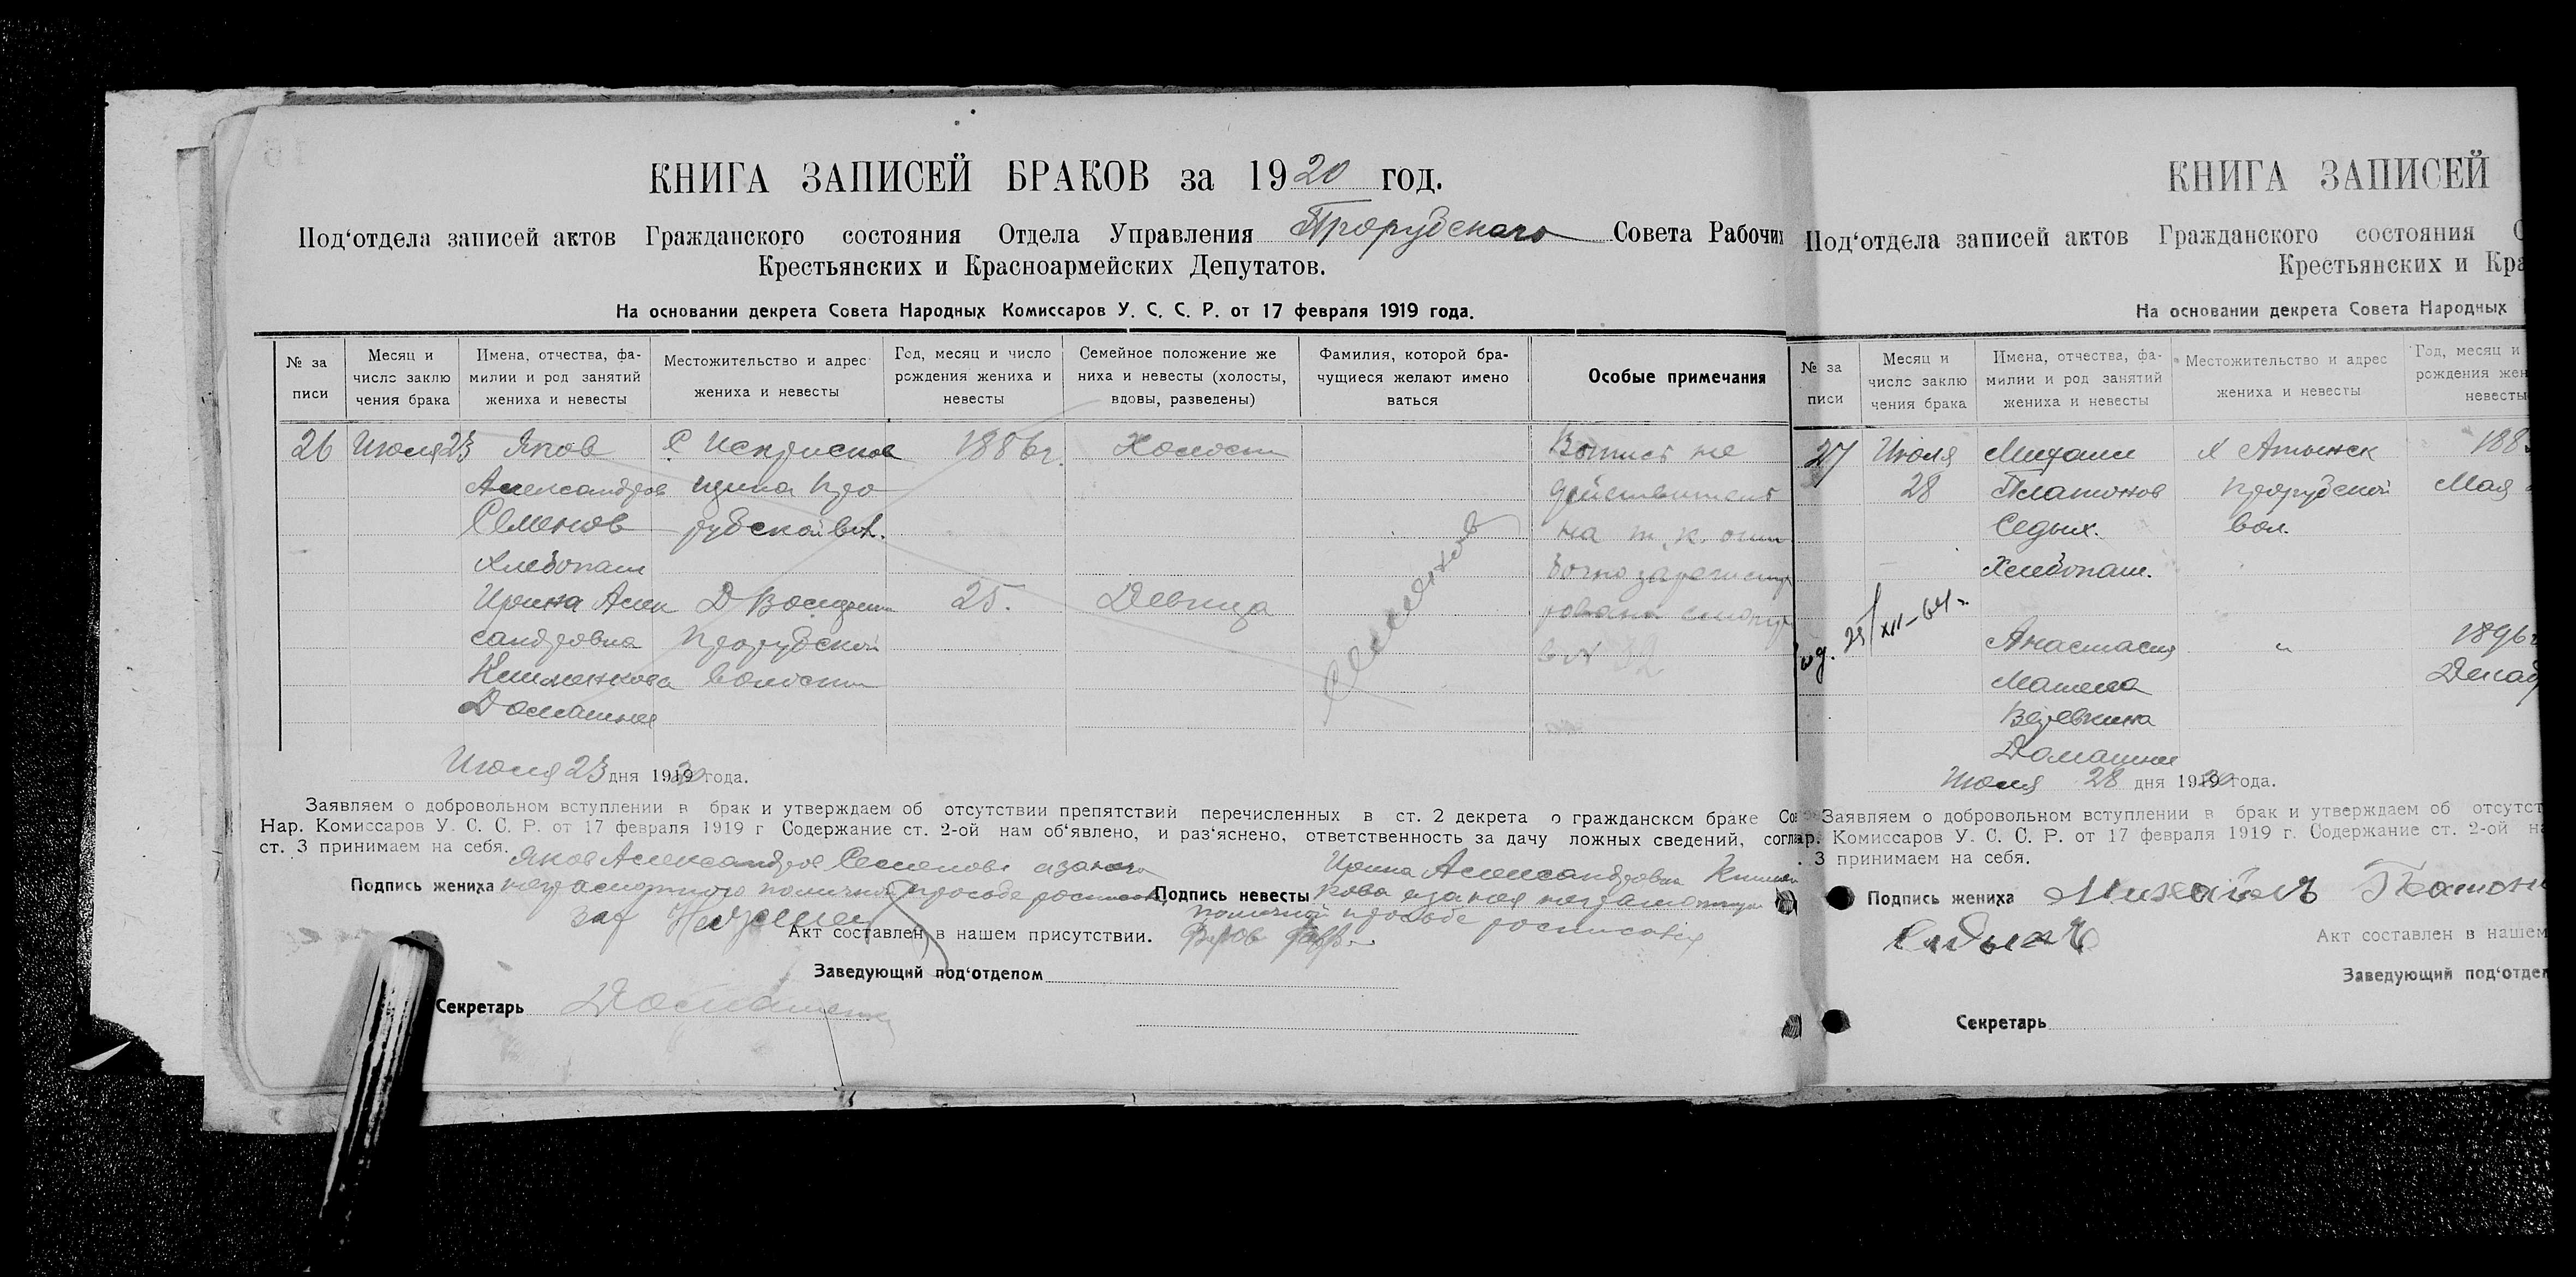 КНИГА ЗАПИСЕЙ БРАКОВ за 1920 год.
Под‘отдела записей актов Гражданского состояния Отдела Управления Прорубского Совета Рабочих
Крестьянских и Красноармейских Депутатов.
На основании декрета Совета Народных Комиссаров У. С. С. Р. от 17 февраля 1919 года.
№ за
писи
Месяц и
число заклю
чения брака
Имена, отчества, фа-
милии и род занятий
жениха и невесты
Местожительство и адрес
жениха и невесты
Год, месяц и число
рождения жениха и
невесты
Семейное положение же
ниха и невесты (холосты,
вдовы, разведены)
Фамилия, которой бра-
чущиеся желают имено
ваться
Особые примечания
26
Июля 23
Яков
Александров
Семенов
Хлебопаш
Ирина Алек
сандровна
Домашняя
С Искрисков
щина Про
рубской вол.
Прорубской
волости
1886г.
25.
Холост
Девица
Семенков
Запись не
действитель
на т. к. оши
бочно зарегистр
рована
в № 32
Июля 23 дня 1920 года.
Заявляем о добровольном вступлении в брак и утверждаем об отсутствии препятствий перечисленных в ст. 2 декрета о гражданском браке Сов
Нар. Комиссаров У. С. С. Р. от 17 февраля 1919 г Содержание ст. 2-ой нам об‘явлено, и раз‘яснено, ответственность за дачу ложных сведений, соглас
ст. 3 принимаем на себя.
Яков Александров Семенов а за него
Подпись жениха неграмотного по личной просьбе
Ирина Александровна
Подпись невесты а за нея неграмотную
по личной просьбе росписался
Акт составлен в нашем присутствии.
Заведующий под‘отделом
Секретарь
КНИГА ЗАПИСЕЙ
Под‘отдела записей актов Гражданского состояния О
Крестьянских и Кра
На основании декрета Совета Народных
№ за
писи
Месяц и
число заклю
чения брака
Имена, отчества, фа-
милии и род занятий
жениха и невесты
Местожительство и адрес
жениха и невесты
Год, месяц и
рождения жен
невесты
27
Июля
28
Михаил
Платонов
Седых.
Хлебопаш.
Анастасия
Веревкина
Домашняя
х Атынск
Прорубской
вол.
"
188
Мая
1896г
Декаб
25/XII-64г.
Июля 28 дня 1920 года.
Заявляем о добровольном вступлении в брак и утверждаем об отсутст
ар. Комиссаров У. С. С. Р. от 17 февраля 1919 г. Содержание ст. 2-ой на
. 3 принимаем на себя.
Подпись жениха Михаилъ Платон
Седыхъ
Акт составлен в нашем
Заведующий под‘отдел
Секретарь